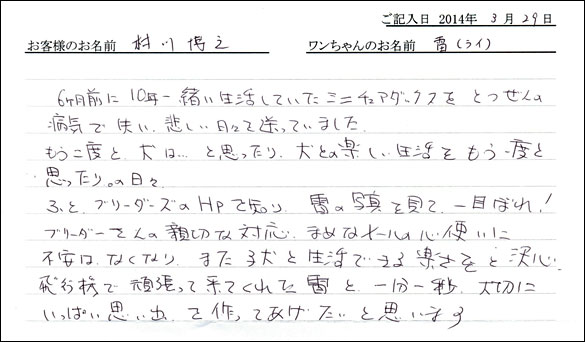 ご記入日 2014年 3月29日
お客様のお名前 村川博之 ワンちゃんのお名前 雷(ライ)
6ヶ月前に10年一緒に生活していたミニチュアダックスをとつぜんの
病気で失い、悲しい日々を送っていました。
もう二度と、犬は…と思ったり、犬との楽しい生活をもう一度と
思ったり。の日々
ふと、ブリーダーズのHPで知り、雷の写真を見て、一目ぼれ!
ブリーダーさんの親切な対応、まめなメールの心使いに
不安はなくなり、また子犬と生活できる楽さをと決心
飛行機で頑張って来てくれた雷と、一分一秒、大切に
いっぱい思い出を作ってあげたいと思います